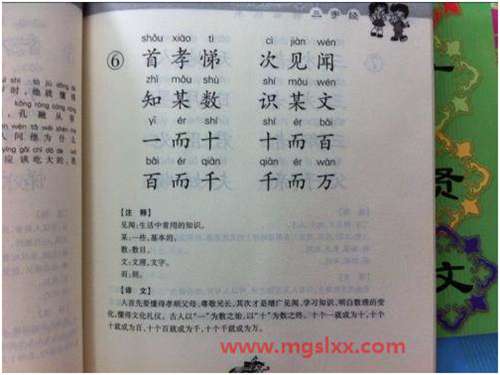 三字经
⑥
shǒu xiào tì cì jiàn wén
首孝悌 次见闻
zhī mǒu shù shí mǒu wén
知某数 识某文
yī ér shí shí ér bǎi
一而十 十而百
bǎi ér qiān qiān ér wàn
百而千 千而万
【注 释】
见闻:生活中常用的知识。
某:一些,基本的。
数:数目。
文:文理,文字。
而:则。
【译 文】
人首先要懂得孝顺父母,尊敬兄长,其次才是增广见闻,学习知识,明白数理的变
化,懂得文化礼仪。古人以“一”为数之始,以“十”为数之终。十个一就成为十,十个
十就成为百,十个百就成为千,十个千就成为万。
时,他就懂得
人问他为什么
应该吃大的,我
贤
文
www.mgslxx.com